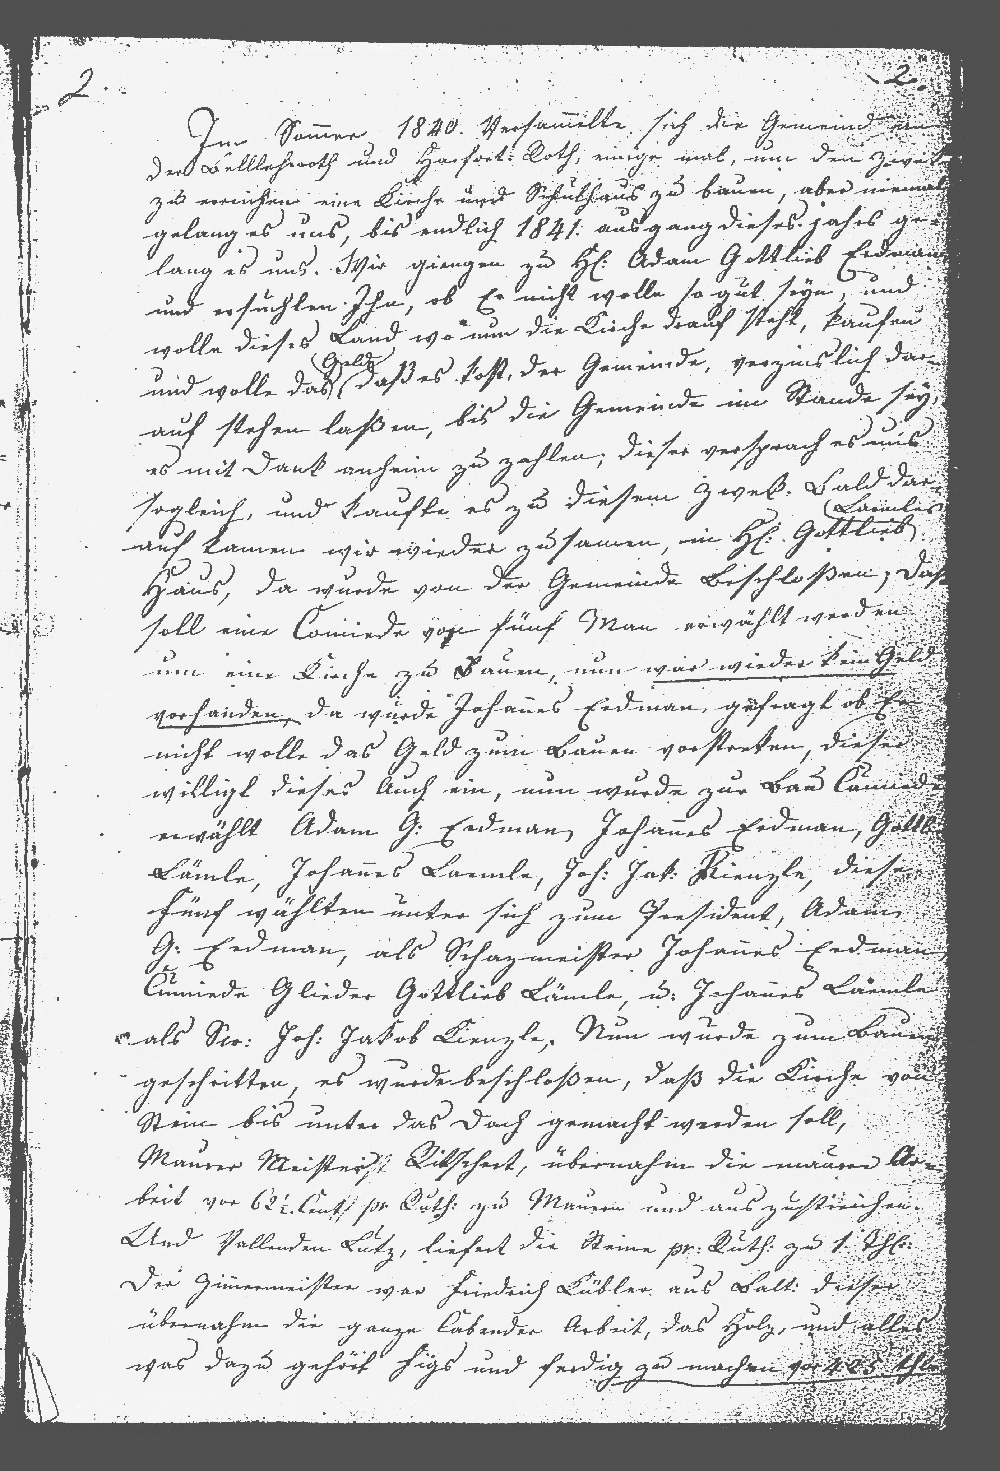 2.
2.
Im Sommer 1840. Versammelte sich die Gemeind an
der Belllehrroth und Harfort: Roth, einige mal, um den Zwek
zu erreichen eine Kirche und Schulhaus zu bauen, aber niemal
gelang es uns, bis endlich 1841. ausgang dieses jahrs ge-
lang es uns. Wir giengen zu H: Adam Gottlieb Erdman
und ersuchten Ihn, ob Er nicht wolle so gut seyn, und
wolle dieses Land wo nun die Kirche drauf steht, kaufen
und wolle das Geld daß es kost, der Gemeinde, verzinslich dar-
auf stehen laßen, bis die Gemeinde im Stande sey,
es mit Dank anheim zu zahlen, dieser versprach es uns
sogleich, und kaufte es zu diesem Zwek. Bald dar-
auf kamen wir wieder zusamen, in H: Gottlieb Laemles
Haus, da wurde von der Gemeinde Beschloßen, daß
soll eine Comiede von fünf Man erwählt werden
um eine Kirche zu Bauen, nun war wieder kein Geld
vorhanden, da wurde Johannes Erdman, gefragt ob Er
nicht wolle das Geld zum Bauen vorstreken, dieser
willigt dieses Auch ein, nun wurde zur Bau Comiede
erwählt Adam G: Erdman, Johannes Erdman, Gottl:
Lämle, Johannes Laemle, Joh: Jak: Kienzle, diese
Fünf wählten unter sich zum President, Adam
G: Erdman, als Schazmeister Johannes Erdman
Comiede Glieder Gottlieb Lämle, u: Johannes Läemle
als Scr: Joh: Jakob Kienzle. Nun wurde zum Bauen
geschritten, es wurde beschloßen, daß die Kirche von
Stein bis unter das Dach gemacht werden soll,
Maurer Meister Ritschert, übernahm die maurer Ar-
beit vor 62½ Cent pr Ruth: zu Mauren und auszustreichen.
Und Vallenden Lutz, liefert die Steine pr: Ruth: zu 1. Thl:
Der Zimermeister war Friedrich Kübler aus Balt: dieser
übernahm die ganze Cabender Arbeit, das Holz, und alles
was dazu gehört Figs und ferdig zu machen vor 405 thl: